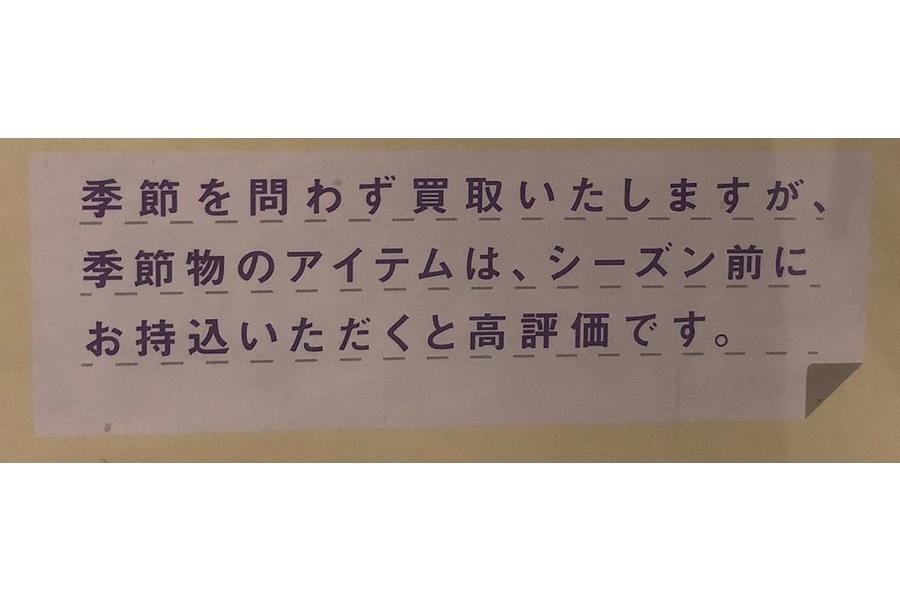 季節を問わず買取いたしますが、
季節物のアイテムは、シーズン前に
お持込いただくと高評価です。